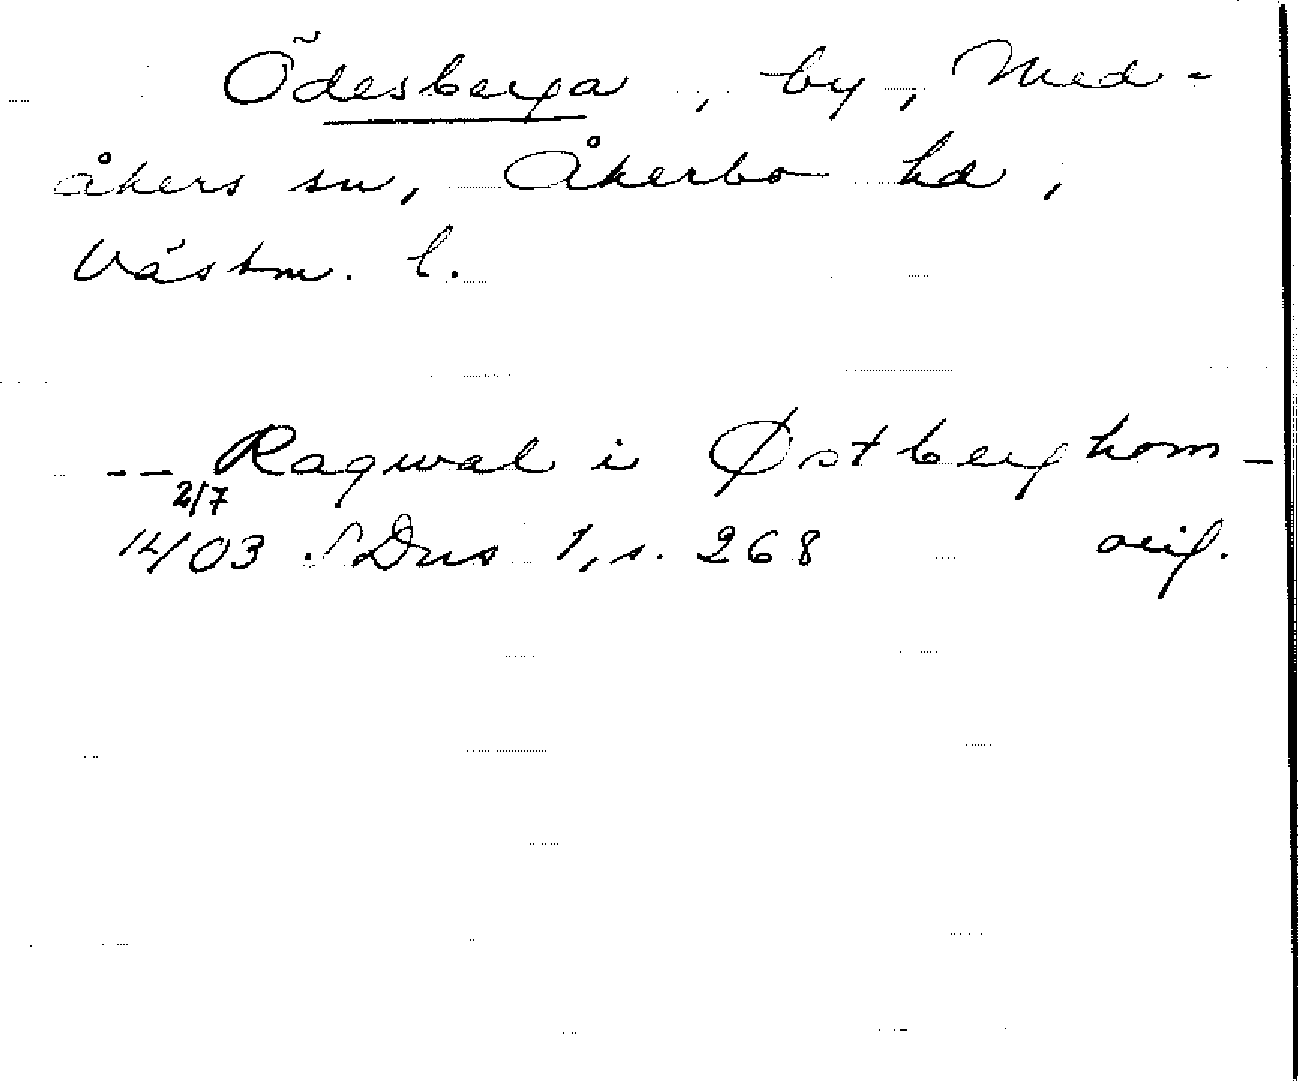 Ödesberga, by, Med-
åkers sn, Åkerbo hd,
Västm. l.
-- Ragwal i Østberghom -
2/7
14/03 SDns 1, s. 268 orig.